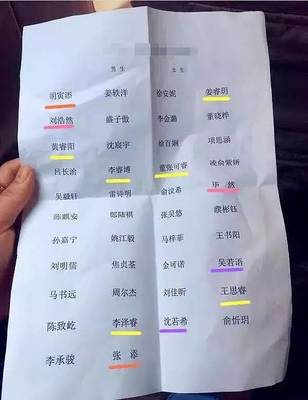 男生 女生
胡寅添 姜轶洋 徐安妮 姜睿玥
刘浩然 盛子傲 李金潞 董晓桦
黄睿阳 沈宸宇 徐百娴 项思涵
吕长治 李睿博 董张可睿 凌俞紫娴
吴毓轩 雷诗明 俞汶希 毕然
陈麒安 郎陆祺 张昊悠 濮彬钰
孙嘉宁 姚江毅 马梓菲 王书阳
刘明儒 焦贞茗 金可诺 吴若语
马书远 周尔杰 刘佳昕 王思睿
陈致屹 李泽睿 沈若希 俞忻玥
李承骏 张添